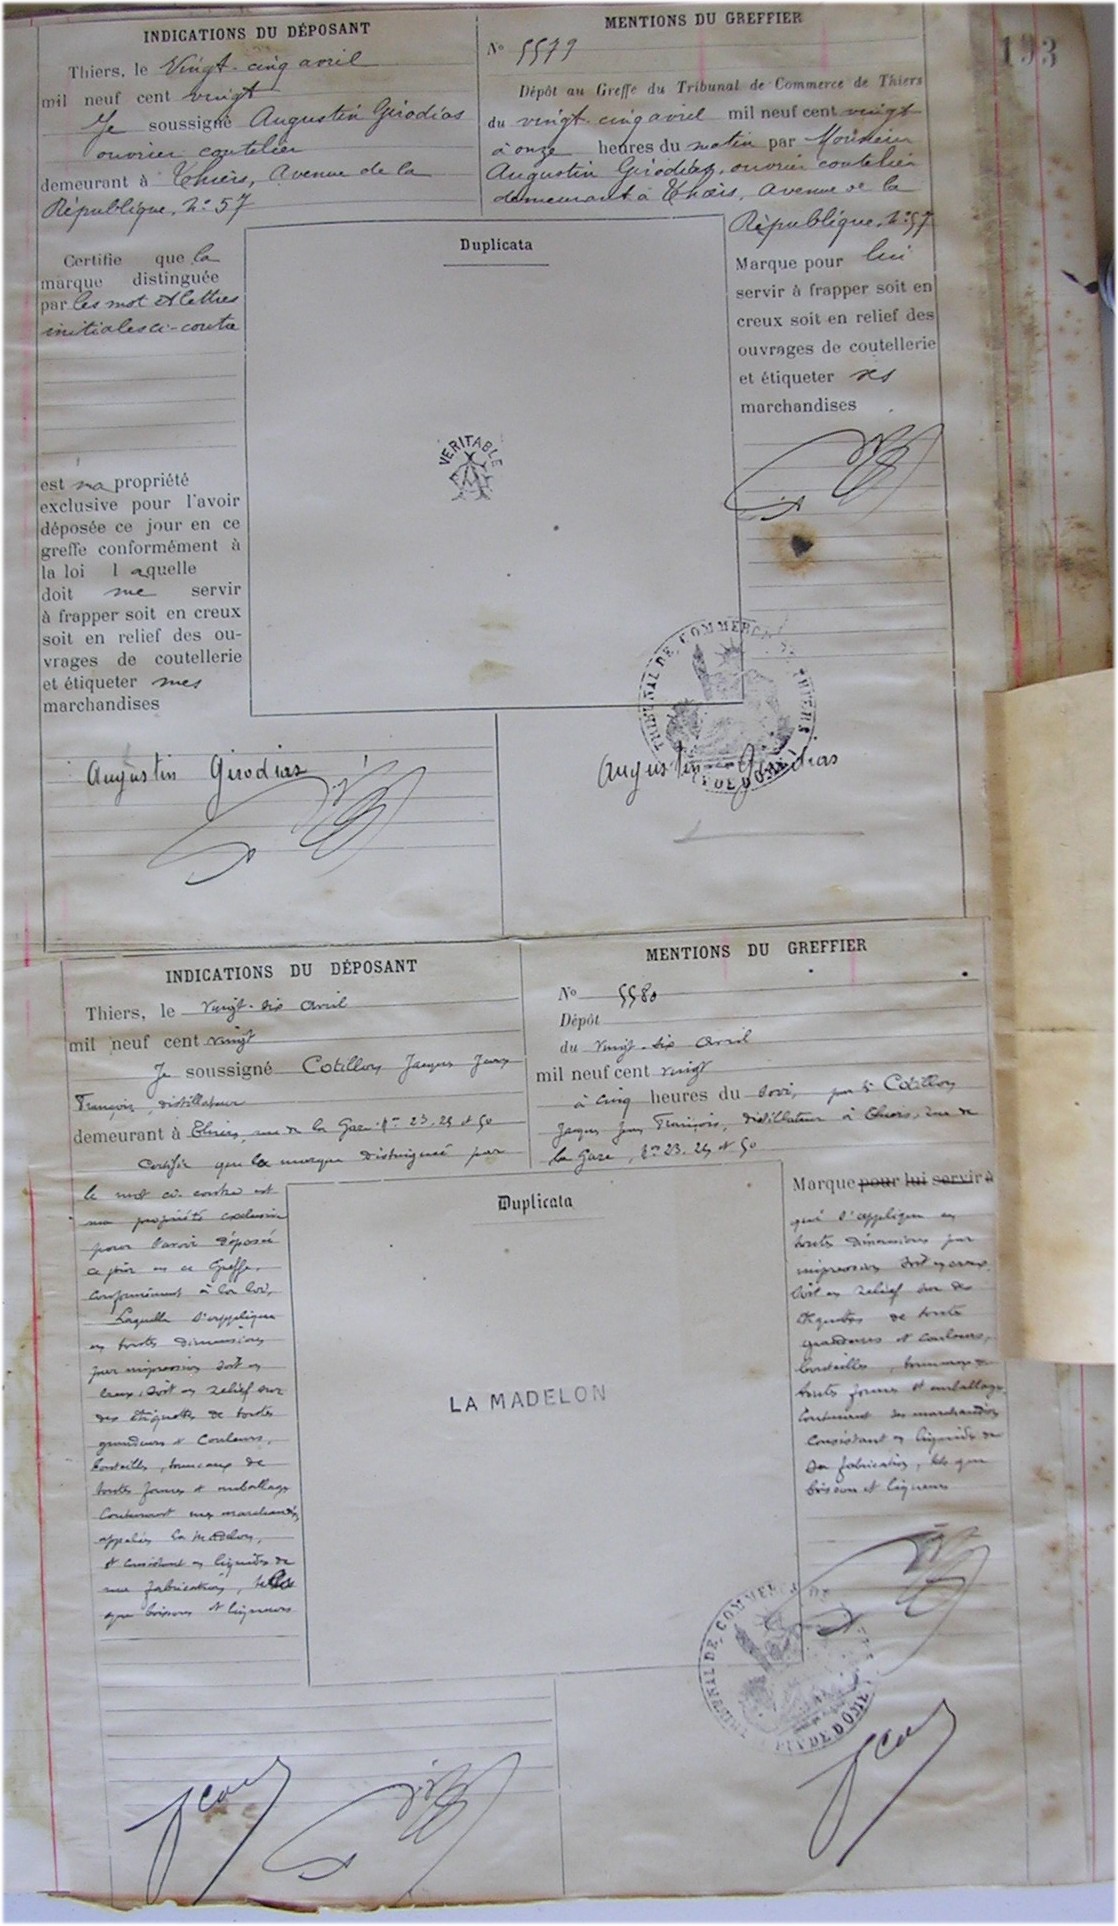 193
INDICATIONS DU DÉPOSANT
Thiers, le Vingt-cinq avril
mil neuf cent vingt
Je soussigné Augustin Girodias
ouvrier coutelier
demeurant à Thiers, Avenue de la
République, N° 57
Certifie que la
marque distinguée
par les mot et lettres
initiales ci-contre
est ma propriété
exclusive pour l'avoir
déposée ce jour en ce
greffe conformément à
la loi laquelle
doit me servir
à frapper soit en creux
soit en relief des ou-
vrages de coutellerie
et étiqueter mes
marchandises
Augustin Girodias
Duplicata
VERITABLE
MENTIONS DU GREFFIER
N° 5579
Dépôt au Greffe du Tribunal de Commerce de Thiers
du vingt cinq avril mil neuf cent vingt
à onze heures du matin par Monsieur
Augustin Girodias, ouvrier coutelier
demeurant à Thiers, Avenue de la
République, N° 57
Marque pour lui
servir à frapper soit en
creux soit en relief des
ouvrages de coutellerie
et étiqueter ses
marchandises
TRIBUNAL DE COMMERCE DE THIERS
PUY DE DOME
Augustin Girodias
INDICATIONS DU DÉPOSANT
Thiers, le vingt-six avril
mil neuf cent vingt
Je soussigné Cotillon Jacques Jean
François, distillateur
demeurant à Thiers, rue de la Gare
Certifie que la marque distinguée par
le mot ci-contre est
ma propriété exclusive
pour l'avoir déposée
ce jour en ce Greffe,
conformément à la loi,
Laquelle s'applique
en toutes dimensions
par impression soit en
creux, soit en relief sur
des étiquettes de toutes
grandeurs et couleurs,
bouteilles, tonneaux de
toutes formes et emballages
contenant mes marchandises
appelées La Madelon,
et consistant en liquides de
ma fabrication, telles
que boissons et liqueurs
Duplicata
LA MADELON
MENTIONS DU GREFFIER
N° 5580
Dépôt
du vingt-six avril
mil neuf cent vingt
à cinq heures du soir, par Cotillon
Jacques Jean François, distillateur à Thiers, rue de
la Gare
Marque pour lui servir à
qui s'applique en
toutes dimensions par
impression soit en creux
soit en relief sur des
étiquettes de toutes
grandeurs et couleurs,
bouteilles, tonneaux de
toutes formes et emballages
contenant ses marchandises
consistant en liquides de
sa fabrication, tels que
boisson et liqueurs
TRIBUNAL DE COMMERCE DE
PUY DE DOME